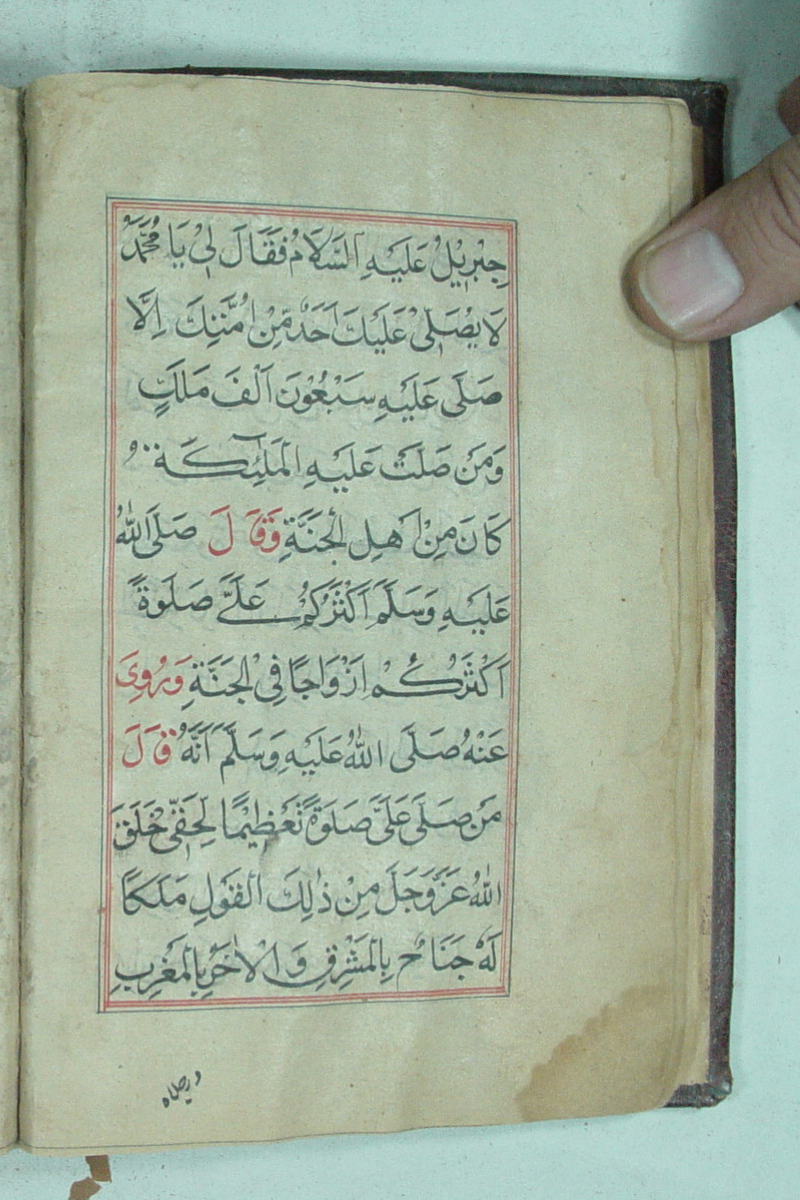 جِبْرِيْلُ عَلَيْهِ السَّلَامُ فَقَالَ لِيْ يَا مُحَمَّدُ
لَا يُصَلِّيْ عَلَيْكَ اَحَدٌ مِّنْ اُمَّتِكَ اِلَّا
صَلَّى عَلَيْهِ سَبْعُوْنَ اَلْفَ مَلَكٍ
وَمَنْ صَلَّتْ عَلَيْهِ الْمَلٰٓئِكَةُ
كَانَ مِنْ اَهْلِ الْجَنَّةِ وَقَالَ صَلَّى اللّٰهُ
عَلَيْهِ وَسَلَّمَ اَكْثَرُكُمْ عَلَيَّ صَلٰوةً
اَكْثَرُكُمْ اَزْوَاجًا فِى الْجَنَّةِ وَرُوِىَ
عَنْهُ صَلَّى اللّٰهُ عَلَيْهِ وَسَلَّمَ اَنَّهُ قَالَ
مَنْ صَلَّى عَلَيَّ صَلٰوةً تَعْظِيْمًا لِّحَقِّيْ خَلَقَ
اللّٰهُ عَزَّوَجَلَّ مِنْ ذٰلِكَ الْقَوْلِ مَلَكًا
لَهُ جَنَاحٌ بِالْمَشْرِقِ وَالْاٰخَرُ بِالْمَغْرِبِ
ورجلاه